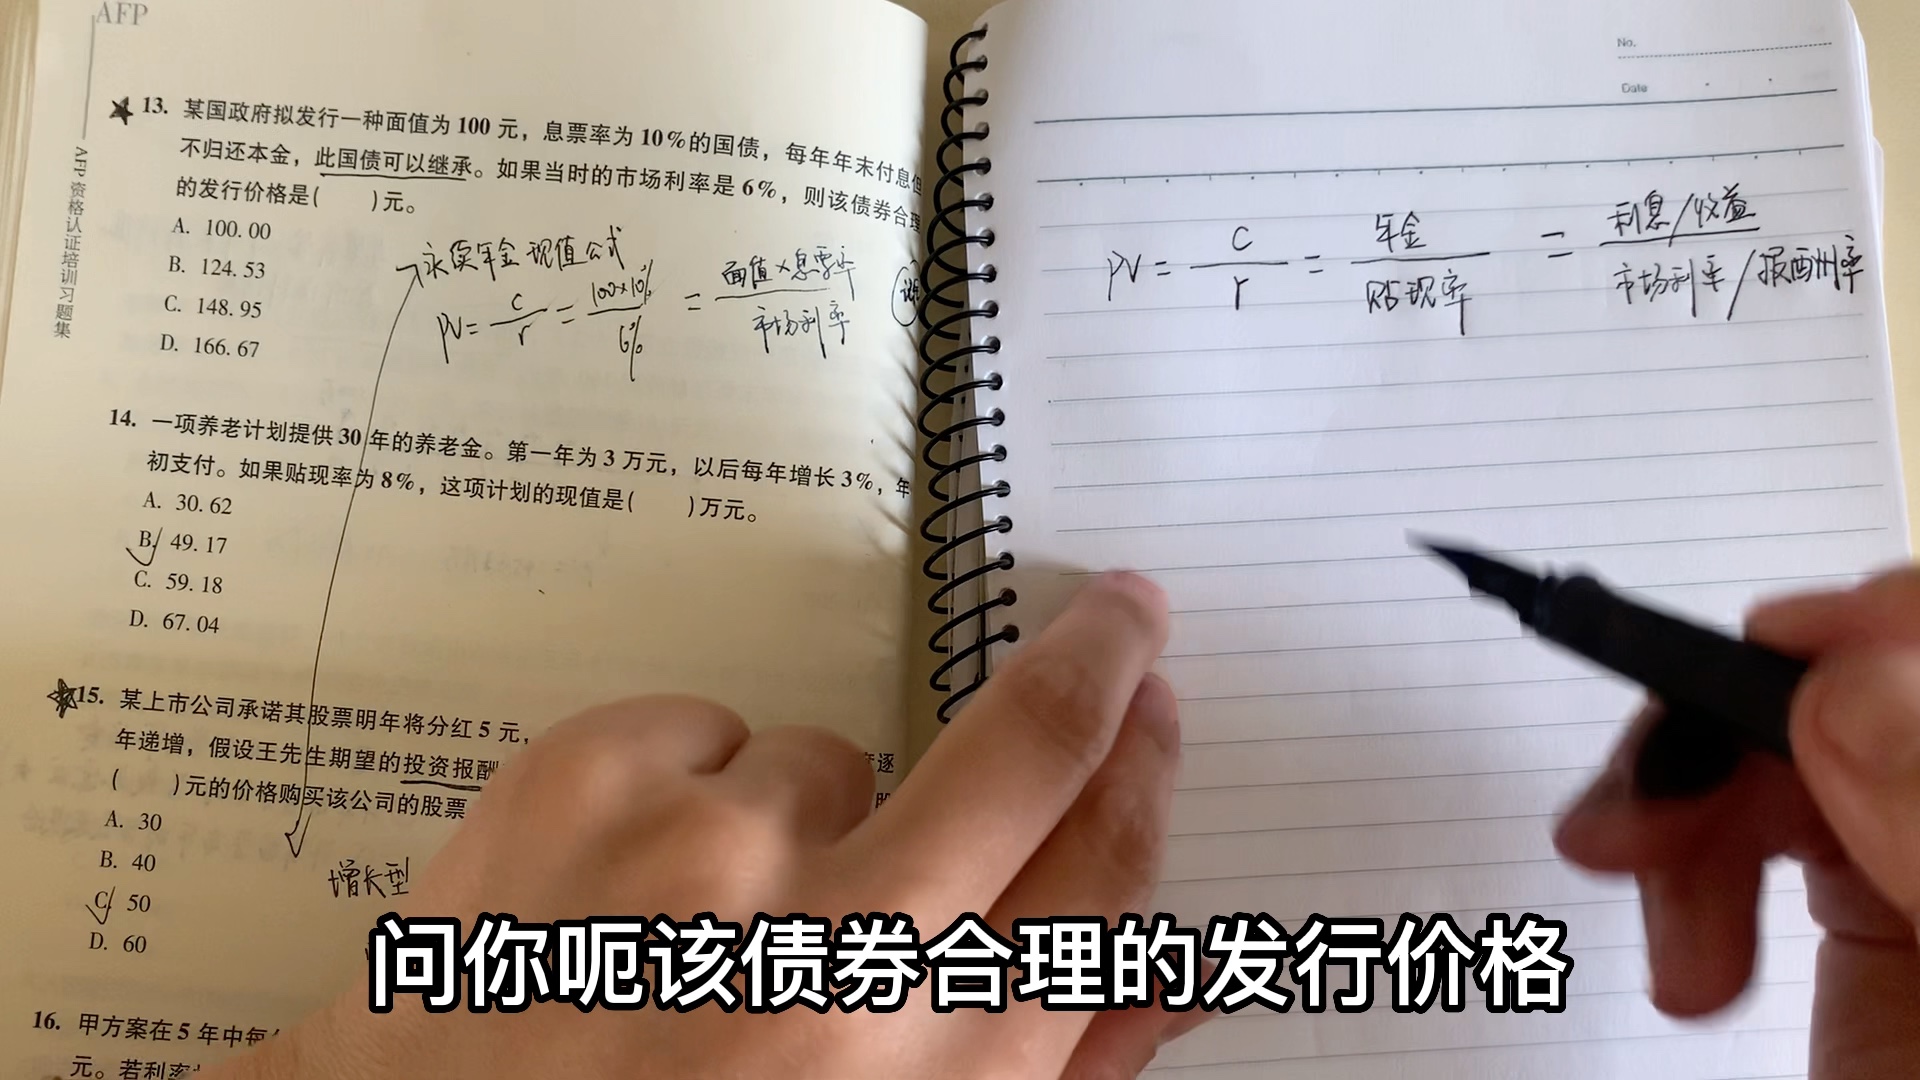 AFP
AFP 资格认证培训习题集
13. 某国政府拟发行一种面值为 100 元，息票率为 10%的国债，每年年末付息但
不归还本金，此国债可以继承。如果当时的市场利率是 6%，则该债券合理
的发行价格是(　　)元。
A. 100.00
B. 124.53
C. 148.95
D. 166.67
永续年金 现值公式
PV= C/r = 100×10%/6% = 面值×息票率/市场利率
14. 一项养老计划提供 30 年的养老金。第一年为 3 万元，以后每年增长 3%，年
初支付。如果贴现率为 8%，这项计划的现值是(　　)万元。
A. 30.62
B. 49.17
C. 59.18
D. 67.04
15. 某上市公司承诺其股票明年将分红 5 元，
逐
年递增，假设王先生期望的投资报酬
(　　)元的价格购买该公司的股票
A. 30
B. 40
C. 50
D. 60
增长型
16. 甲方案在 5 年中每
元。若利率
No.
Date
PV = C/r = 年金/贴现率 = 利息/收益 / 市场利率/报酬率
问你呃该债券合理的发行价格